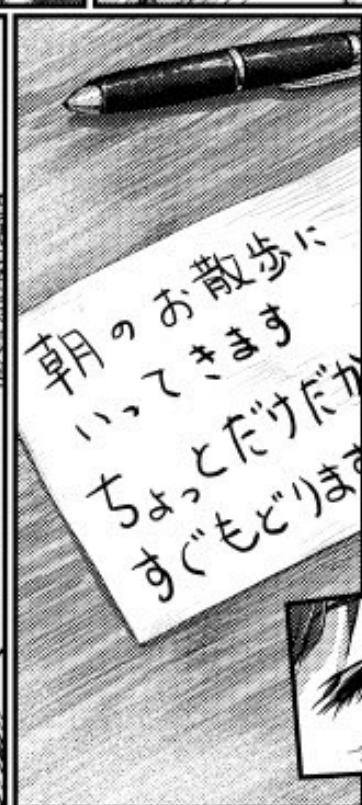 朝のお散歩に
いってきます
ちょっとだけだか
すぐもどります